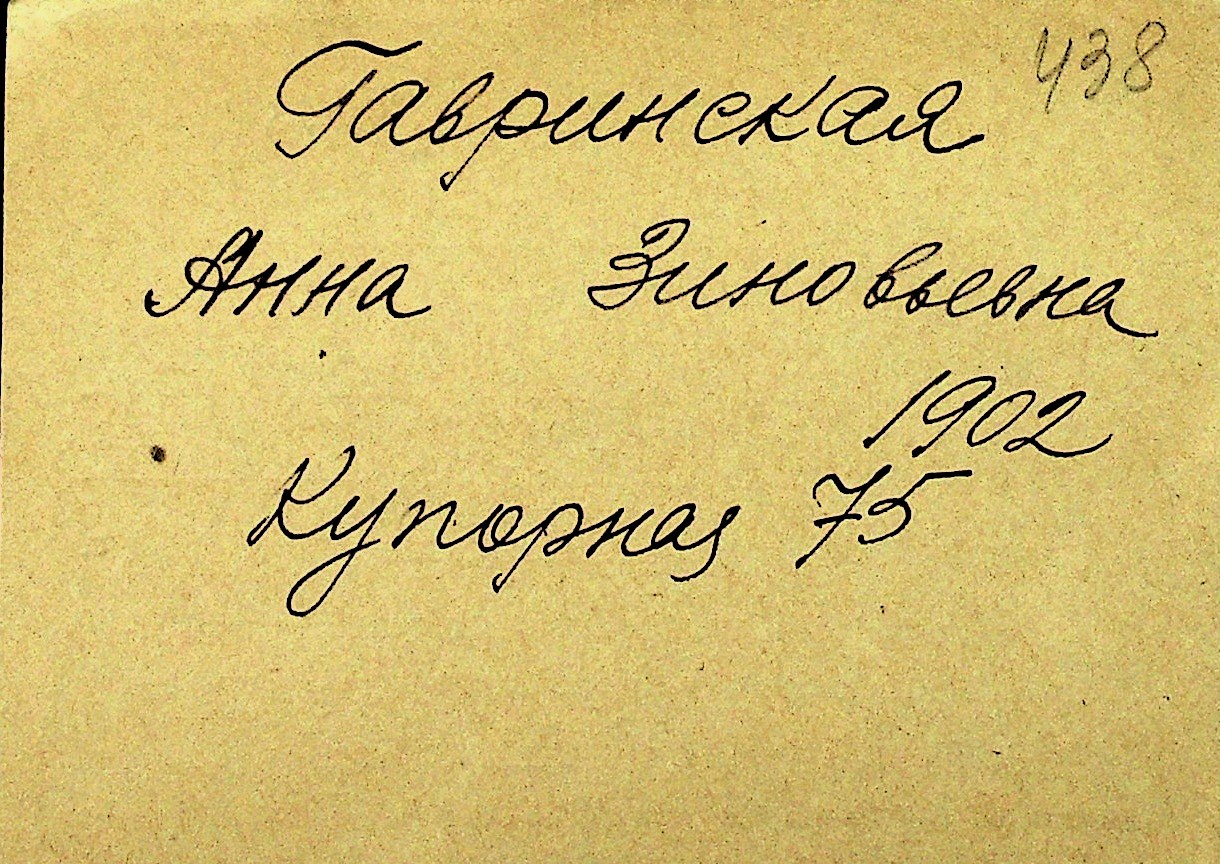 438
Гавринская
Анна Зиновьевна
1902
Купорная 75